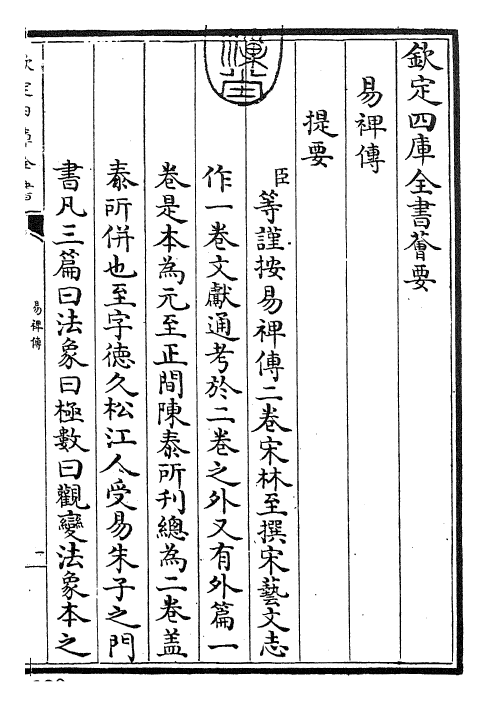 欽定四庫全書薈要
易禆傳
提要
臣等謹按易禆傳二卷宋林至撰宋藝文志
作一卷文獻通考於二卷之外又有外篇一
卷是本為元至正間陳泰所刊總為二卷盖
泰所併也至字徳久松江人受易朱子之門
書凡三篇曰法象曰極數曰觀變法象本之
易禆傳
一